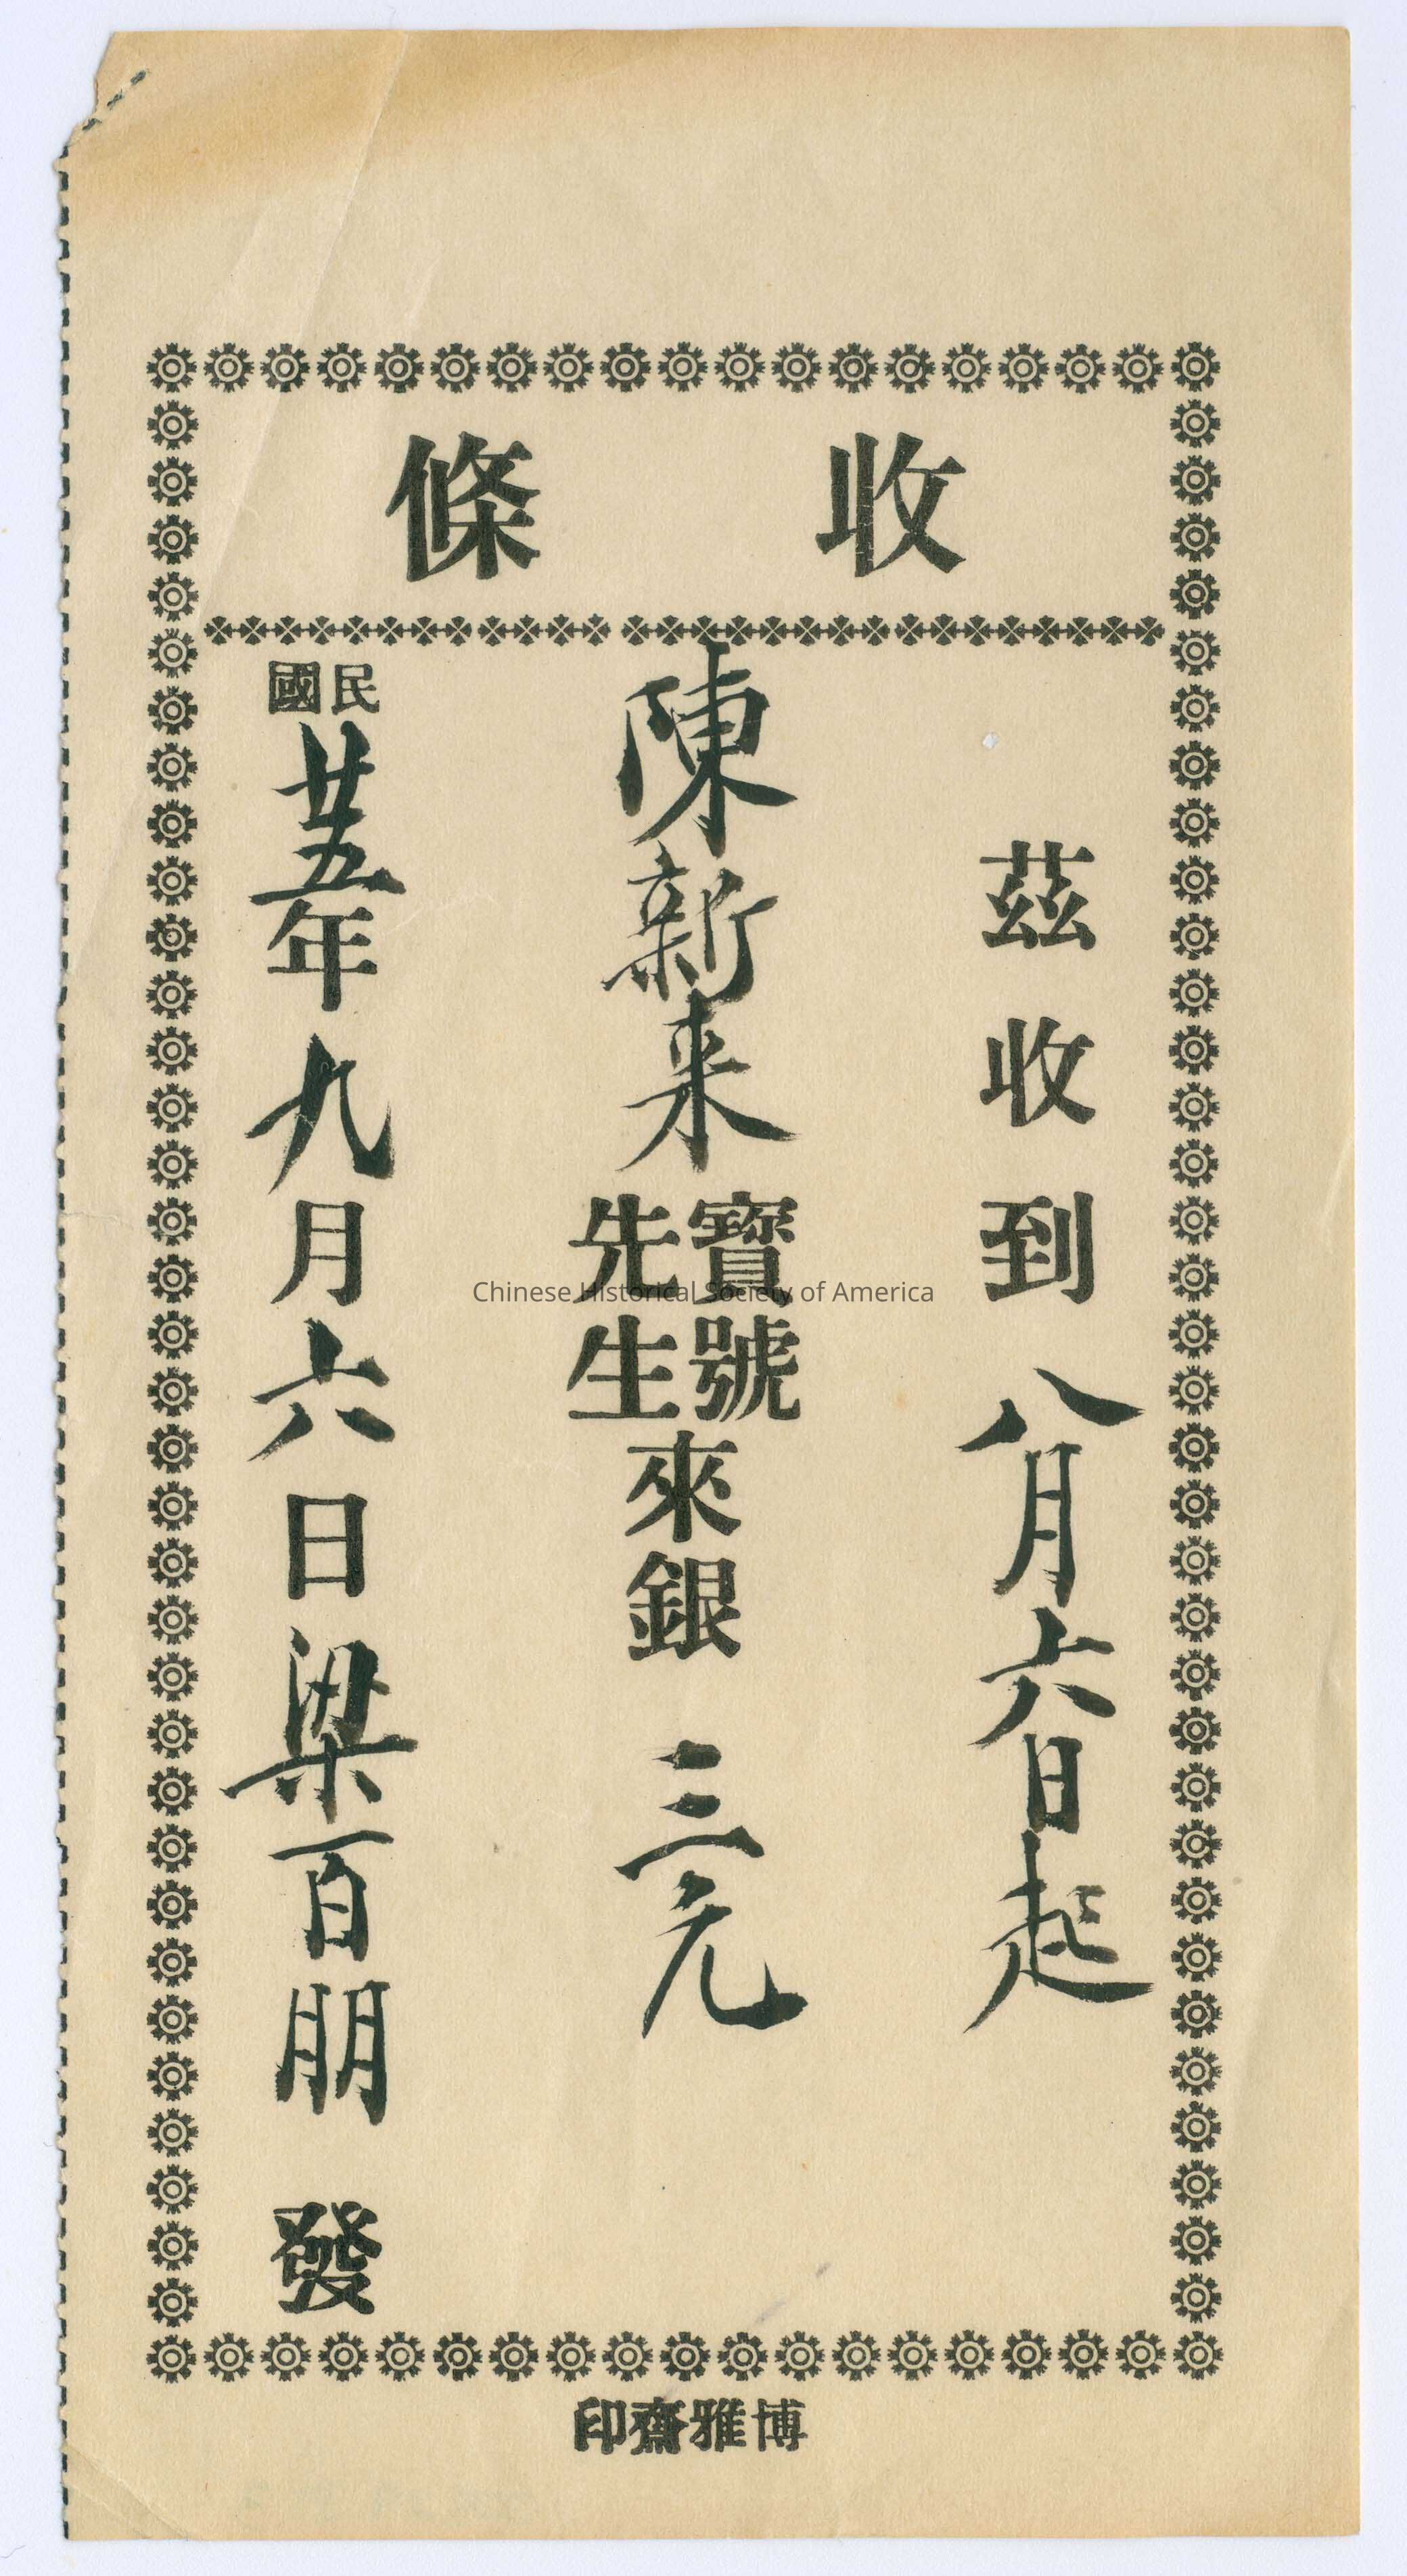 收條
茲收到八月六日起
陳新来寶號先生來銀三元
民國廿五年九月六日梁百朋發
博雅齋印
Chinese Historical Society of America